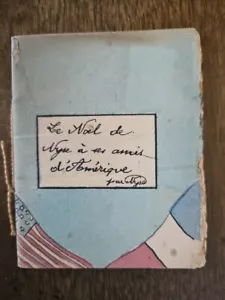 Le Noël de
Nyse à ses amis
d'Amérique
par Nyse